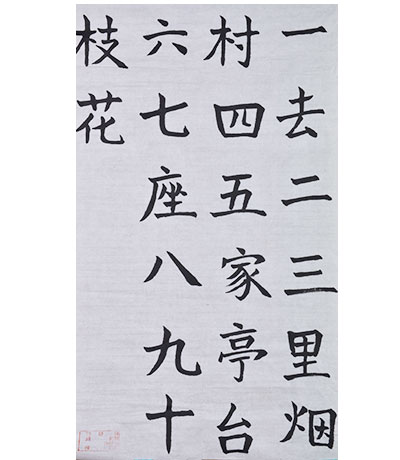 一去二三里烟
村四五家亭台
六七座八九十
枝花